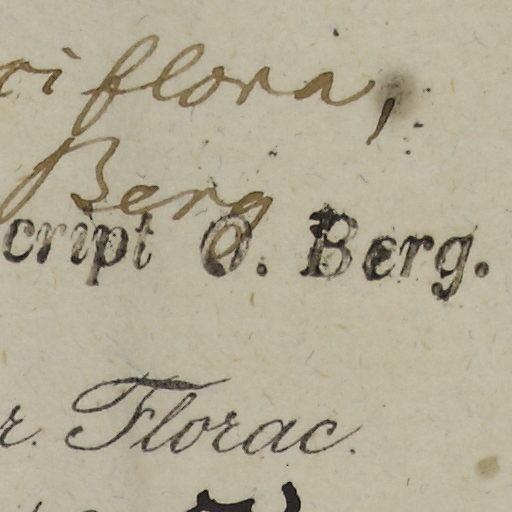 riflora,
Berg
cript O. Berg.
r. Florac.